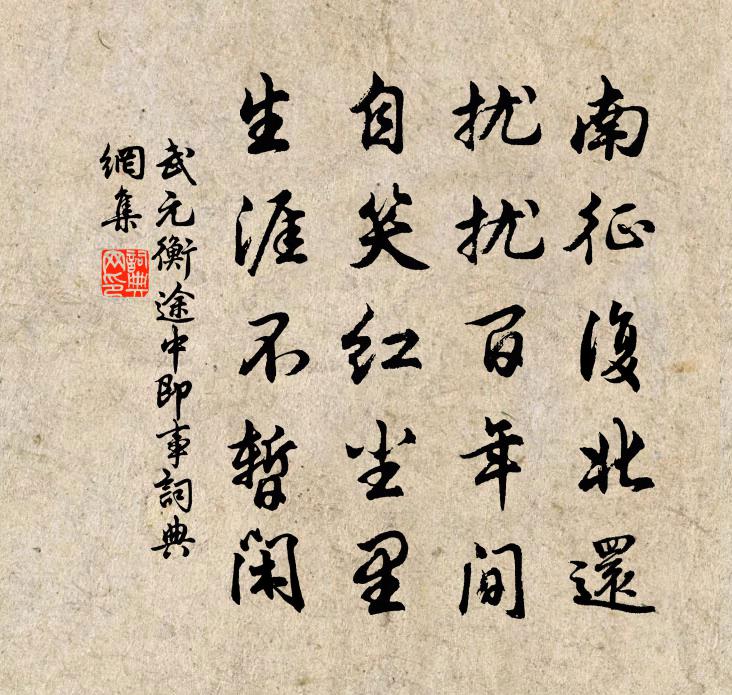 南征復北還
扰扰百年间
自笑红尘里
生涯不暂闲
武元衡途中即事詞典
網集
詞典
网印